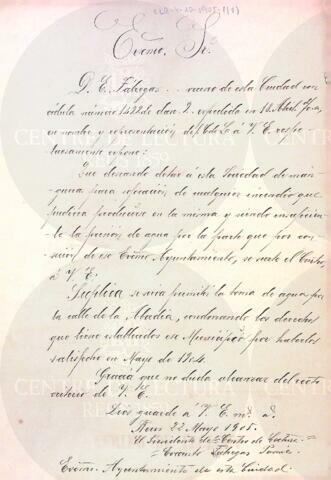 Excmo. Sr.
D. E. Fábregas vecino de esta Ciudad con
cédula número 1422 de clase 2. expedida en 10 Abril
en nombre y representación del C. de L. á V. E. respe-
tuosamente expone:
Que deseando dotar á esta Sociedad de man-
guera para sofocación de cualquier incendio que
pudiera producirse en la misma y siendo insuficien-
te la presión de agua por la parte que por con-
de ese Excmo. Ayuntamiento, se surte el Centro
á V. E.
Suplica se sirva permitir la toma de agua por
la calle de la Abadía, condonando los derechos
que tiene establecidos ese Municipio por haberlos
satisfecho en Mayo de 1904.
Gracia que no duda alcanzar del recto
criterio de V. E.
Dios guarde á V. E. ms. as.
Reus 22 Mayo 1905.
El Presidente del Centro de Lectura
Evaristo Fábregas
Excmo. Ayuntamiento de esta Ciudad.
CENTRE DE LECTURA